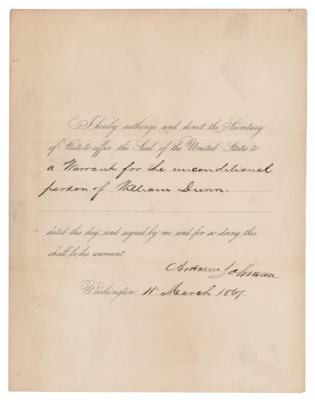 I hereby authorize and direct the Secretary
of State to affix the Seal of the United States to
a Warrant for the unconditional
pardon of William Dunn.
dated this day, and signed by me and for so doing this
shall be his warrant.
Andrew Johnson
Washington, 11 March 1867.